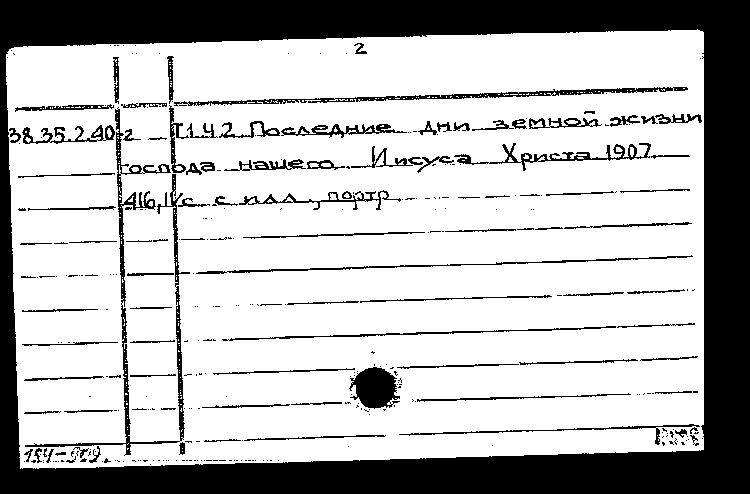 2
38.35.2.40-2 Т1.Ч.2. Последние дни земной жизни
господа нашего Иисуса Христа. 1907.
416,IVс. с илл., портр.